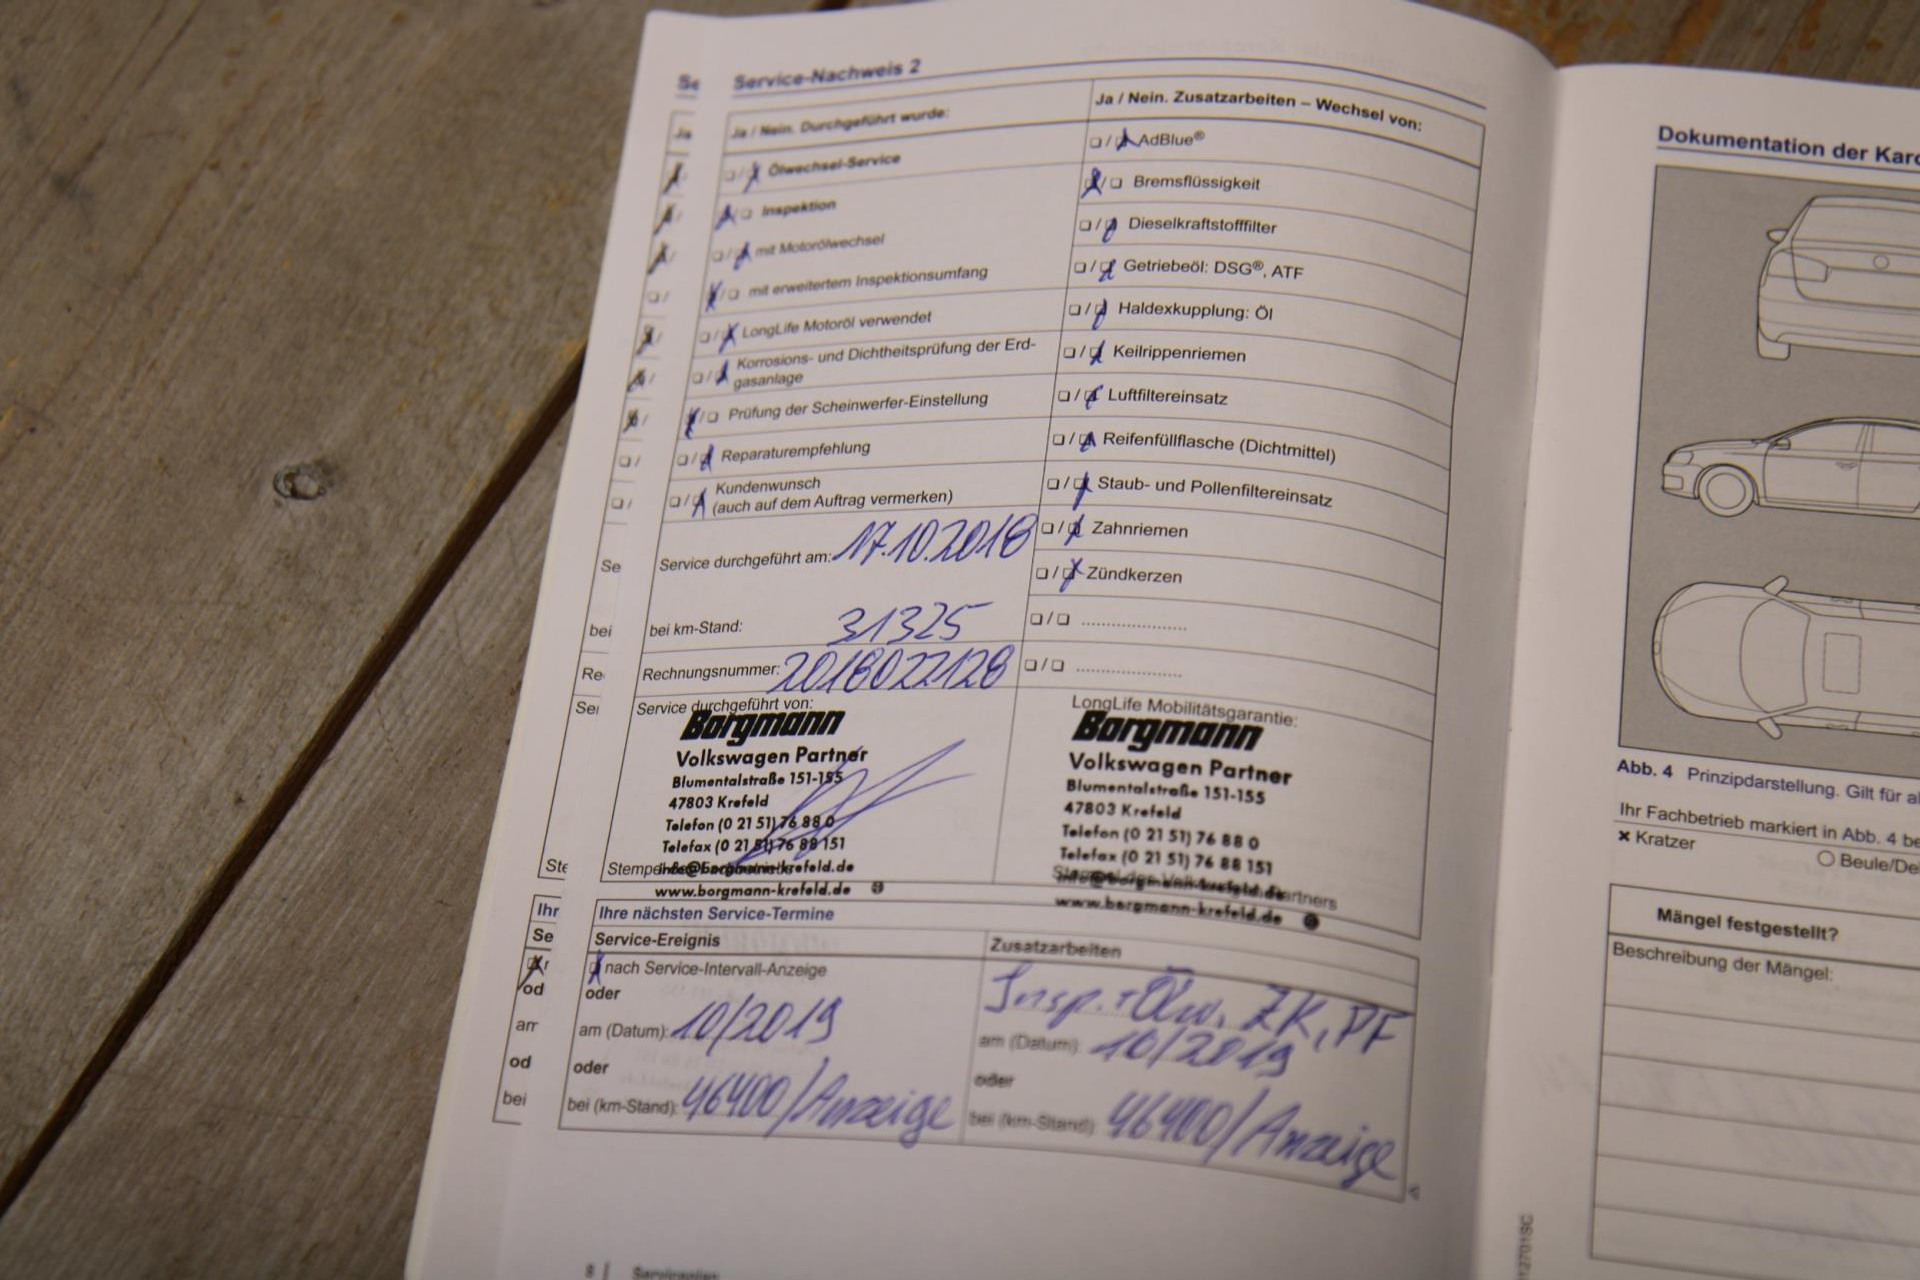 Se
Service-Nachweis 2
Ja
Ja / Nein. Durchgeführt wurde:
Ölwechsel-Service
Inspektion
mit Motorölwechsel
mit erweitertem Inspektionsumfang
LongLife Motoröl verwendet
Korrosions- und Dichtheitsprüfung der Erd-
gasanlage
Prüfung der Scheinwerfer-Einstellung
Reparaturempfehlung
Kundenwunsch
(auch auf dem Auftrag vermerken)
Se
Service durchgeführt am: 17.10.2018
bei
bei km-Stand: 31325
Re
Rechnungsnummer: 2018022128
Sei
Service durchgeführt von:
Borgmann
Volkswagen Partner
Blumentalstraße 151-155
47803 Krefeld
Telefon (0 21 51) 76 88 0
Telefax (0 21 51) 76 88 151
info@borgmann-krefeld.de
www.borgmann-krefeld.de
Ste
Ja / Nein. Zusatzarbeiten – Wechsel von:
AdBlue®
Bremsflüssigkeit
Dieselkraftstofffilter
Getriebeöl: DSG®, ATF
Haldexkupplung: Öl
Keilrippenriemen
Luftfiltereinsatz
Reifenfüllflasche (Dichtmittel)
Staub- und Pollenfiltereinsatz
Zahnriemen
Zündkerzen
LongLife Mobilitätsgarantie:
Borgmann
Volkswagen Partner
Blumentalstraße 151-155
47803 Krefeld
Telefon (0 21 51) 76 88 0
Telefax (0 21 51) 76 88 151
info@borgmann-krefeld.de
www.borgmann-krefeld.de
Ihr
Ihre nächsten Service-Termine
Se
Service-Ereignis
nach Service-Intervall-Anzeige
od
oder
am (Datum): 10/2019
od
oder
bei
bei (km-Stand): 46400/Anzeige
Zusatzarbeiten
Insp. + Ölw, ZK, PF
am (Datum): 10/2019
oder
bei (km-Stand): 46400/Anzeige
8 | Serviceplan
Dokumentation der Karo
Abb. 4 Prinzipdarstellung. Gilt für al
Ihr Fachbetrieb markiert in Abb. 4 be
× Kratzer
○ Beule/De
Mängel festgestellt?
Beschreibung der Mängel: